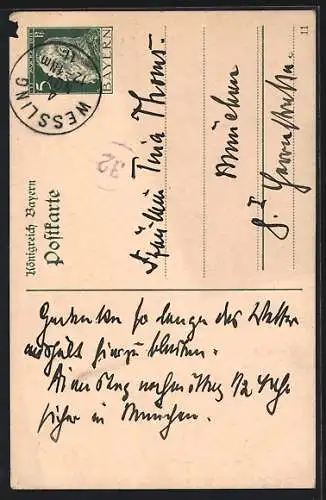 Königreich Bayern
Postkarte
5
BAYERN
WESSLING
(32)
11
Fräulein Tina Thoms.
München
Georgenstraße
Gedenken so lange das Wetter
aushält hier zu bleiben.
Dienstag nachmittag 1/2 Uhr
sicher in München.